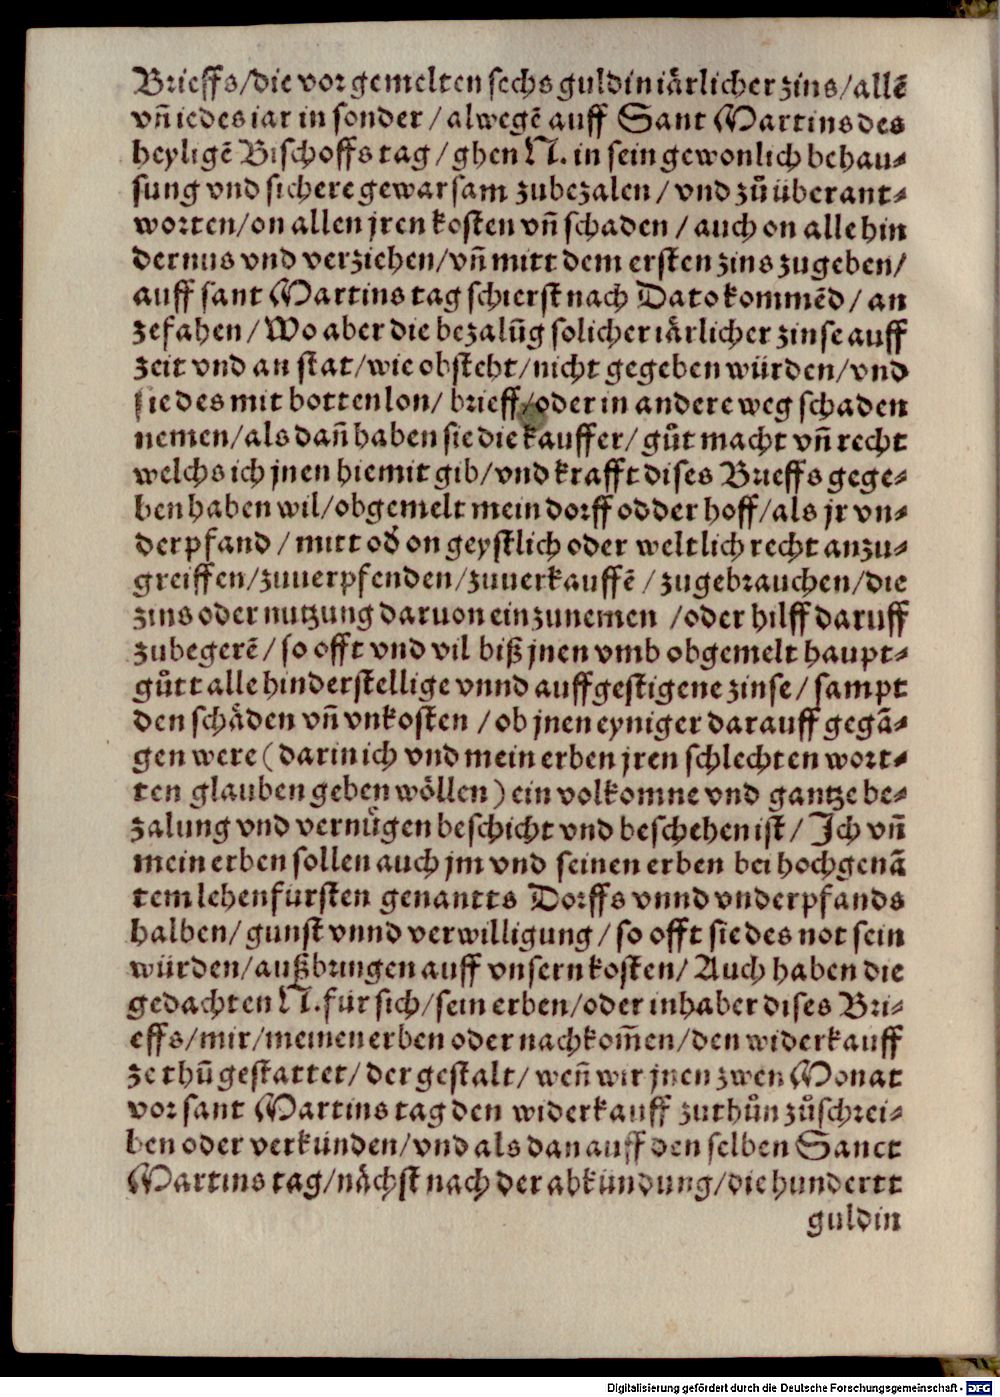 Brieffs/die vor gemelten sechs guldin iärlicher zins/allē
vñ iedes iar in sonder / alwegē auff Sant Martins des
heyligē Bischoffs tag / ghen N. in sein gewonlich behau⸗
sung vnd sichere gewarsam zubezalen / vnd zů überant⸗
worten/on allen jren kosten vñ schaden / auch on alle hin
dernus vnd verziehen/vñ mitt dem ersten zins zugeben/
auff sant Martins tag schierst nach Dato kommēd / an
zefahen / Wo aber die bezalūg solicher iärlicher zinse auff
zeit vnd an stat/wie obsteht/nicht gegeben würden/vnd
sie des mit bottenlon/ brieff/oder in andere weg schaden
nemen/als dañ haben sie die kauffer/ gůt macht vñ recht
welchs ich jnen hiemit gib/vnd krafft dises Brieffs gege⸗
ben haben wil/obgemelt mein dorff odder hoff/als jr vn⸗
derpfand / mitt oď on geystlich oder weltlich recht anzu⸗
greiffen/zuuerpfenden/zuuerkauffē / zugebrauchen/die
zins oder nutzung daruon einzunemen /oder hilff daruff
zubegerē / so offt vnd vil biß jnen vmb obgemelt haupt⸗
gůtt alle hinderstellige vnnd auffgestigene zinse / sampt
den schäden vñ vnkosten / ob jnen eyniger darauff gegā⸗
gen were ( darin ich vnd mein erben jren schlechten wort⸗
ten glauben geben wöllen ) ein volkomne vnd gantze be⸗
zalung vnd vernůgen beschicht vnd beschehen ist / Ich vñ
mein erben sollen auch jm vnd seinen erben bei hochgenā
tem lehenfürsten genantts Dorffs vnnd vnderpfands
halben/ gunst vnnd verwilligung / so offt sie des not sein
würden/außbringen auff vnsern kosten/ Auch haben die
gedachten N. für sich/sein erben/oder inhaber dises Bri⸗
effs/mir/meinen erben oder nachkom̄en/den widerkauff
ze thů gestattet/ der gestalt/ weñ wir jnen zwen Monat
vor sant Martins tag den widerkauff zuthůn zůschrei⸗
ben oder verkünden/vnd als dan auff den selben Sanct
Martins tag/nächst nach der abkündung/die hundertt
guldin
Digitalisierung gefördert durch die Deutsche Forschungsgemeinschaft - DFG